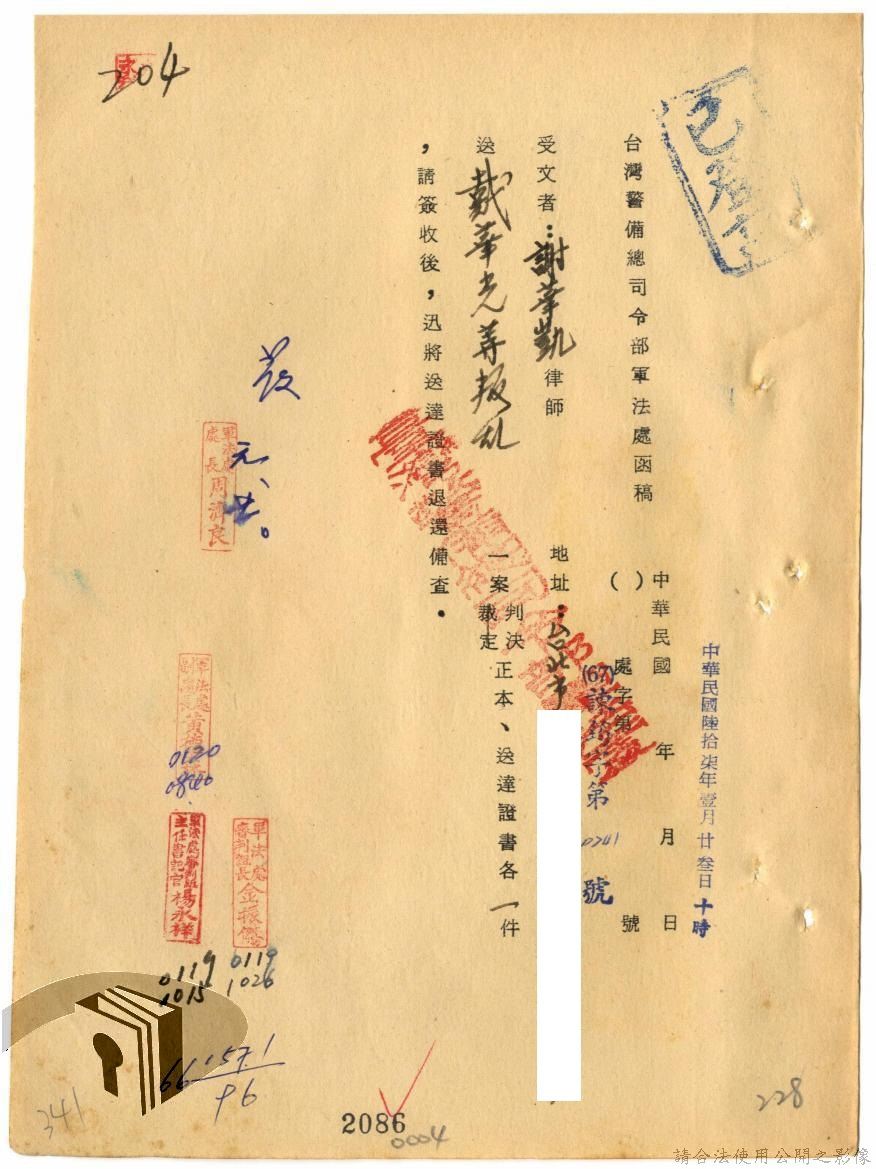 204
中華民國陸拾柒年壹月廿叁日十時
台灣警備總司令部軍法處函稿
中華民國 年 月 日
( ) 處字第 號
(67)諫 字第0241號
受文者：謝華凱律師 地址：台北市
送戴華光等叛乱一案判決裁定正本、送達證書各一件
，請簽收後，迅將送達證書退還備查。
發
元 廿
軍法處處長周濟良
軍法處副處長黃
0120
0840
軍法處審判組長金
軍法處審判組主任書記官楊永祥
0119
1026
0119
1015
66 1571
96
341
2086
0004
228
請合法使用公開之影像